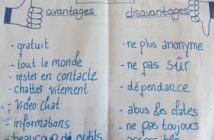 avantages
- gratuit
- tout le monde
- rester en contacte
- chatter vitement
- Video chat
- informations
- beaucoup d'outils
disavantages
- ne plus anonyme
- ne pas sûr
- dépendance
- abus & dates
- ne pas toujours